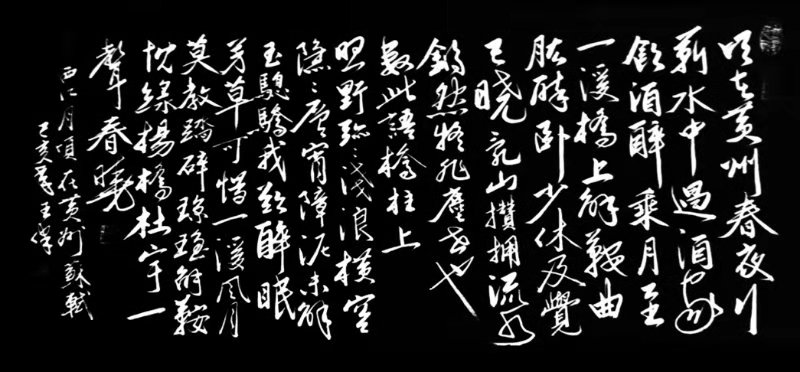 頃在黃州春夜行
蘄水中過酒家
飲酒醉乘月至
一溪橋上解鞍曲
肱醉臥少休及覺
已曉亂山攢擁流水
鏘然疑非塵世也
書此語橋柱上
照野瀰〻淺浪橫空
隱〻層霄障泥未解
玉驄驕我欲醉眠
芳草可惜一溪風月
莫教踏碎瓊瑤解鞍
枕綠楊橋杜宇一
聲春曉
西江月頃在黃州蘇軾
己亥王